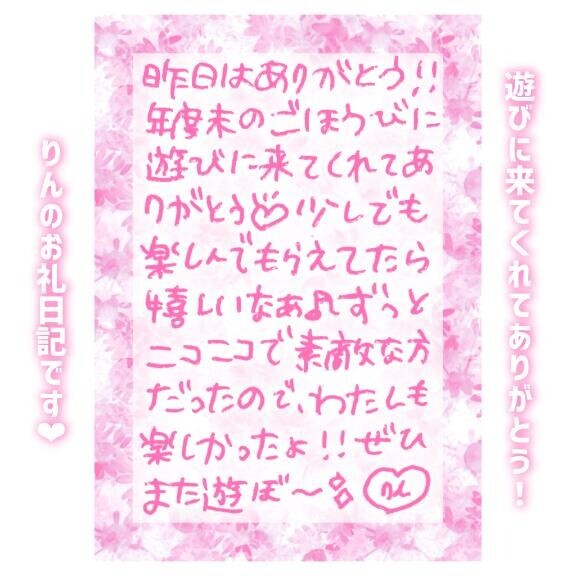 遊びに来てくれてありがとう！
昨日はありがとう!!
年度末のごほうびに
遊びに来てくれてあ
りがとう♡少しでも
楽しんでもらえてたら
嬉しいなぁ♪ずっと
ニコニコで素敵な方
だったので、わたしも
楽しかったよ!!ぜひ
また遊ぼ〜
りん
りんのお礼日記です❤